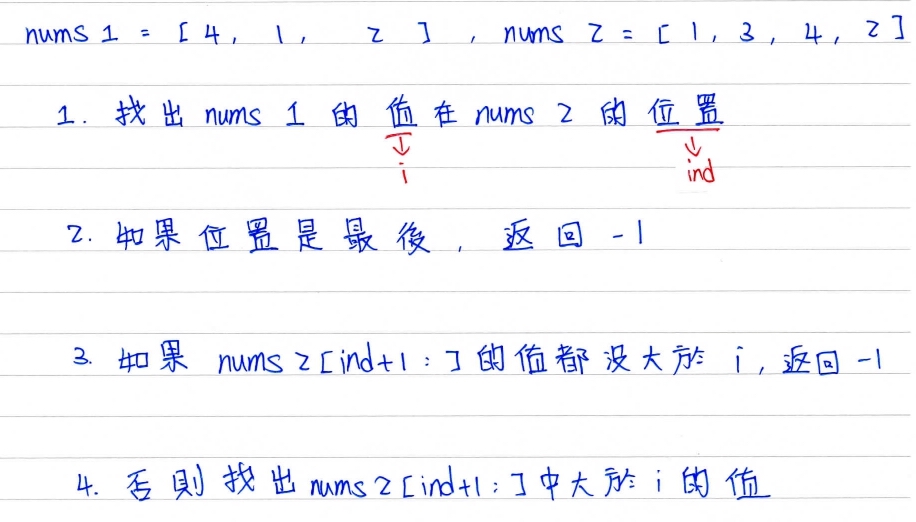 nums 1 = [ 4, 1, 2 ] , nums 2 = [ 1, 3, 4, 2 ]
1. 找出 nums 1 的 值 在 nums 2 的 位置
↓ ↓
i ind
2. 如果位置是最後, 返回 -1
3. 如果 nums 2 [ind+1 : ] 的值都沒大於 i, 返回 -1
4. 否則找出 nums 2 [ind+1 : ] 中大於 i 的值